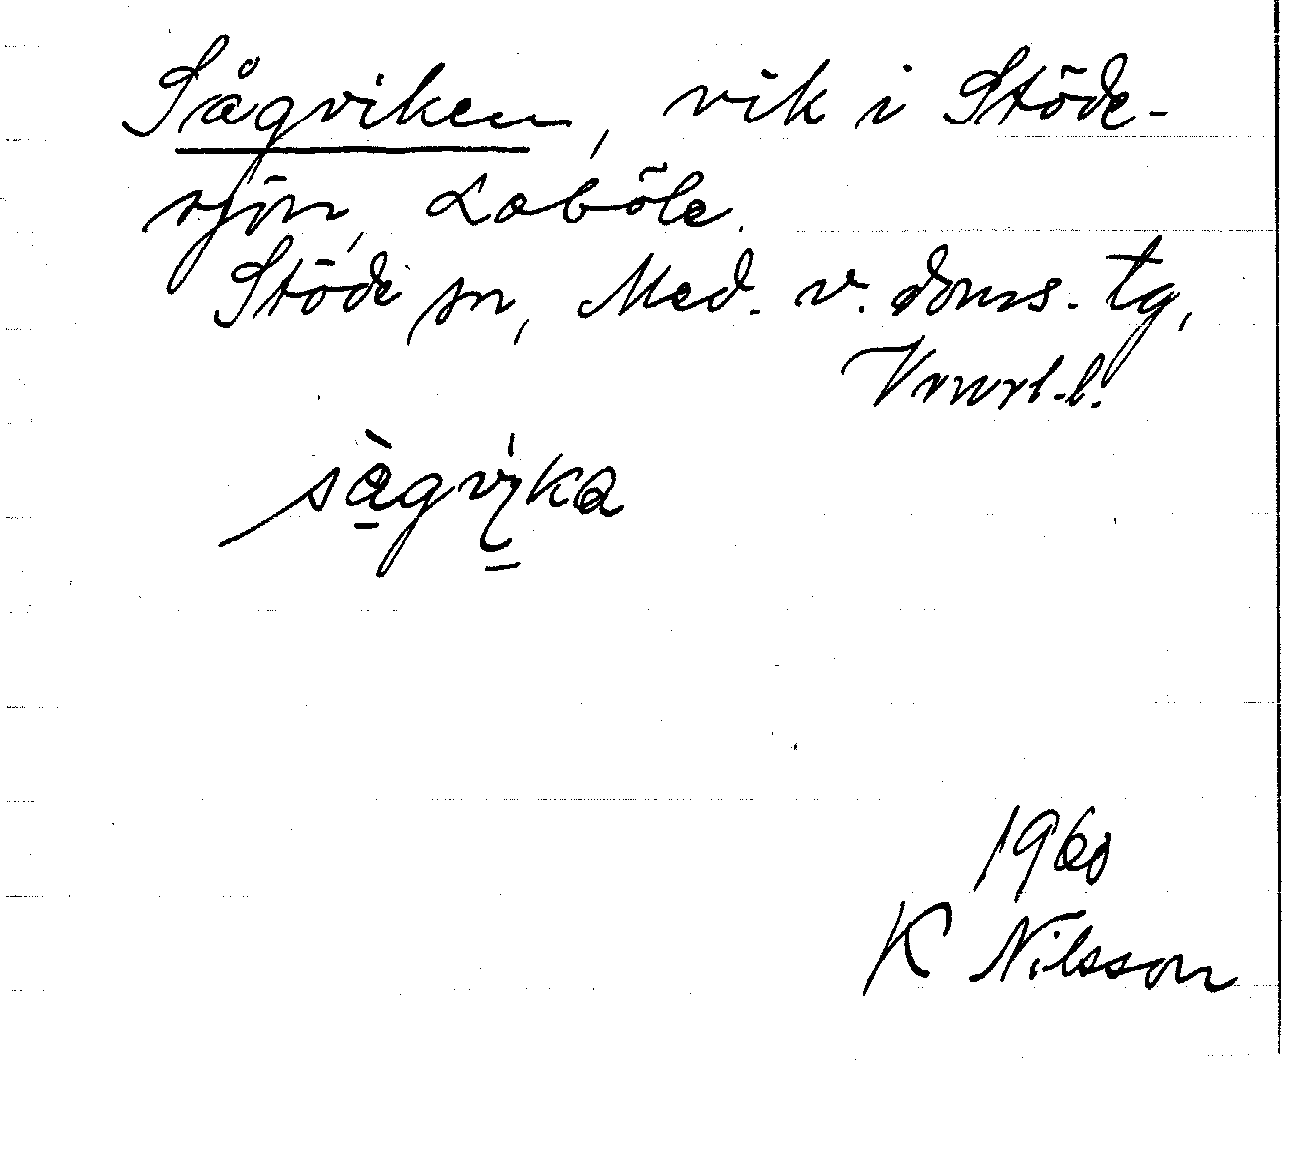 Sågviken, vik i Stöde-
sjön, Laböle.
Stöde sn, Med. v. doms. tg,
Vnorl. l.
sàgvika
1960
K Nilsson